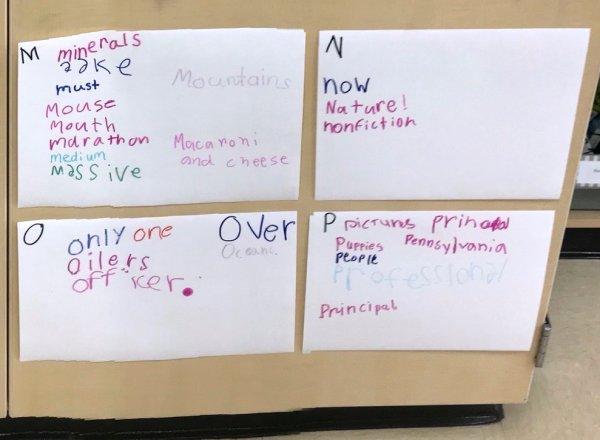 M
minerals
must
Mouse
Mouth
marathon
medium
massive
Mountains
Macaroni
and cheese
N
now
Nature!
nonfiction
O
only one
Oilers
officer.
Over
Oceans.
P
pictures
Puppies Pennsylvania
PeoPLe
Professional
Principal